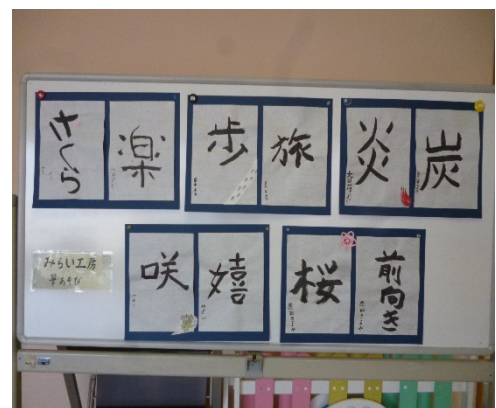 さくら
楽
歩
旅
炎
炭
みらい工房
筆あそび
咲
嬉
桜
前向き